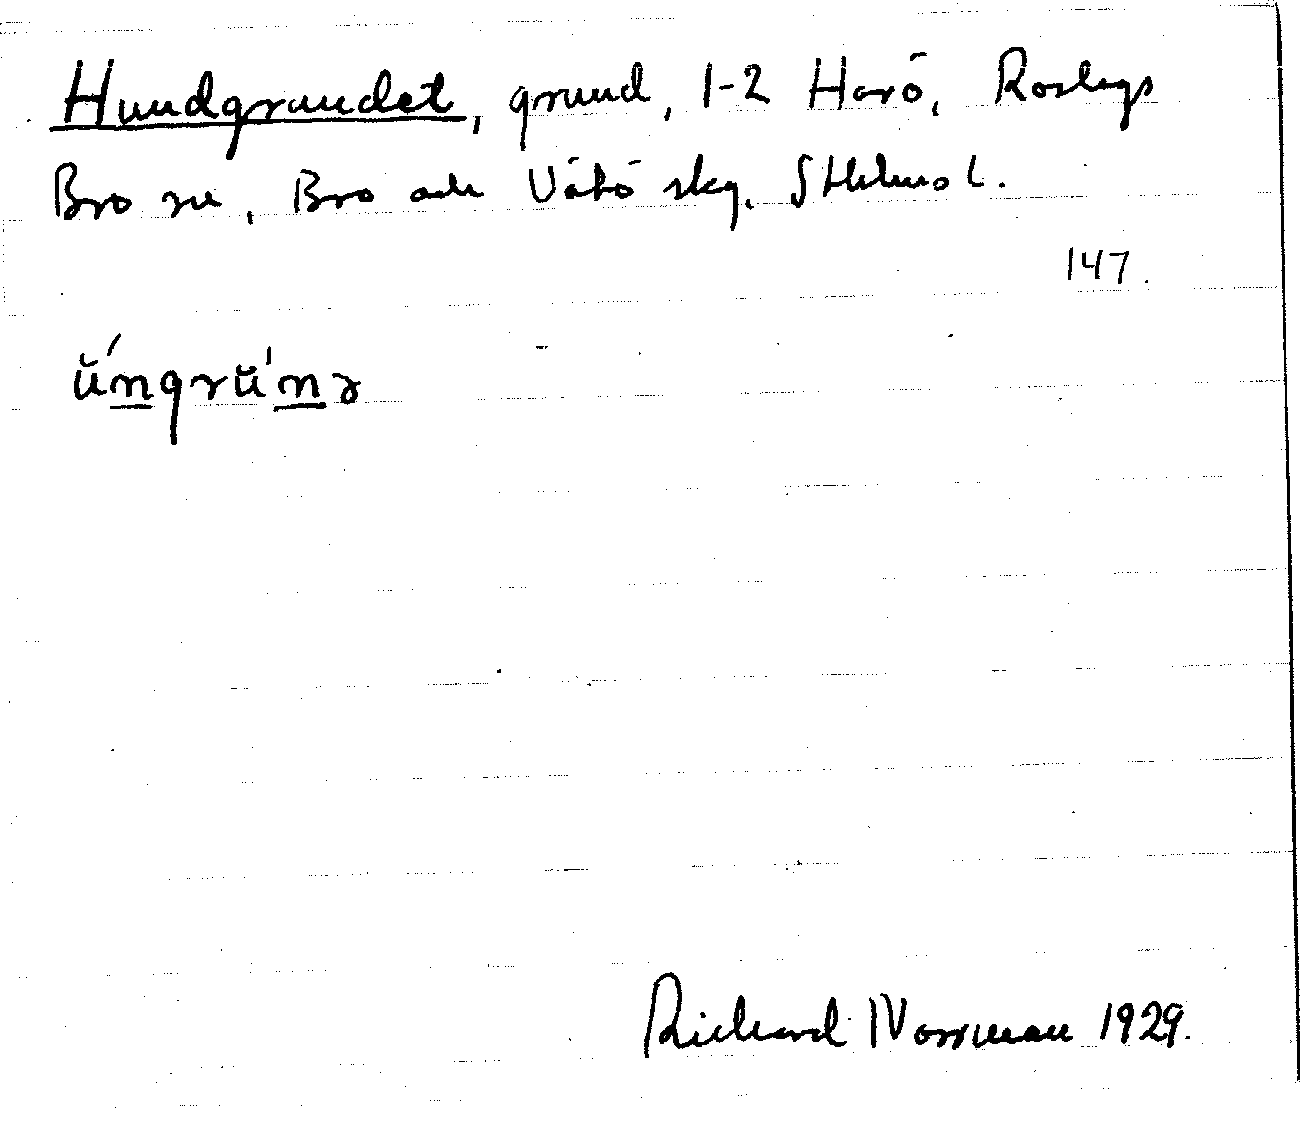 Hundgrundet, grund, 1-2 Harö, Roslags
Bro sn, Bro och Vätö skg, Sthlms l.
147.
ŭ́ngrŭ'nə
Richard Norrman 1929.